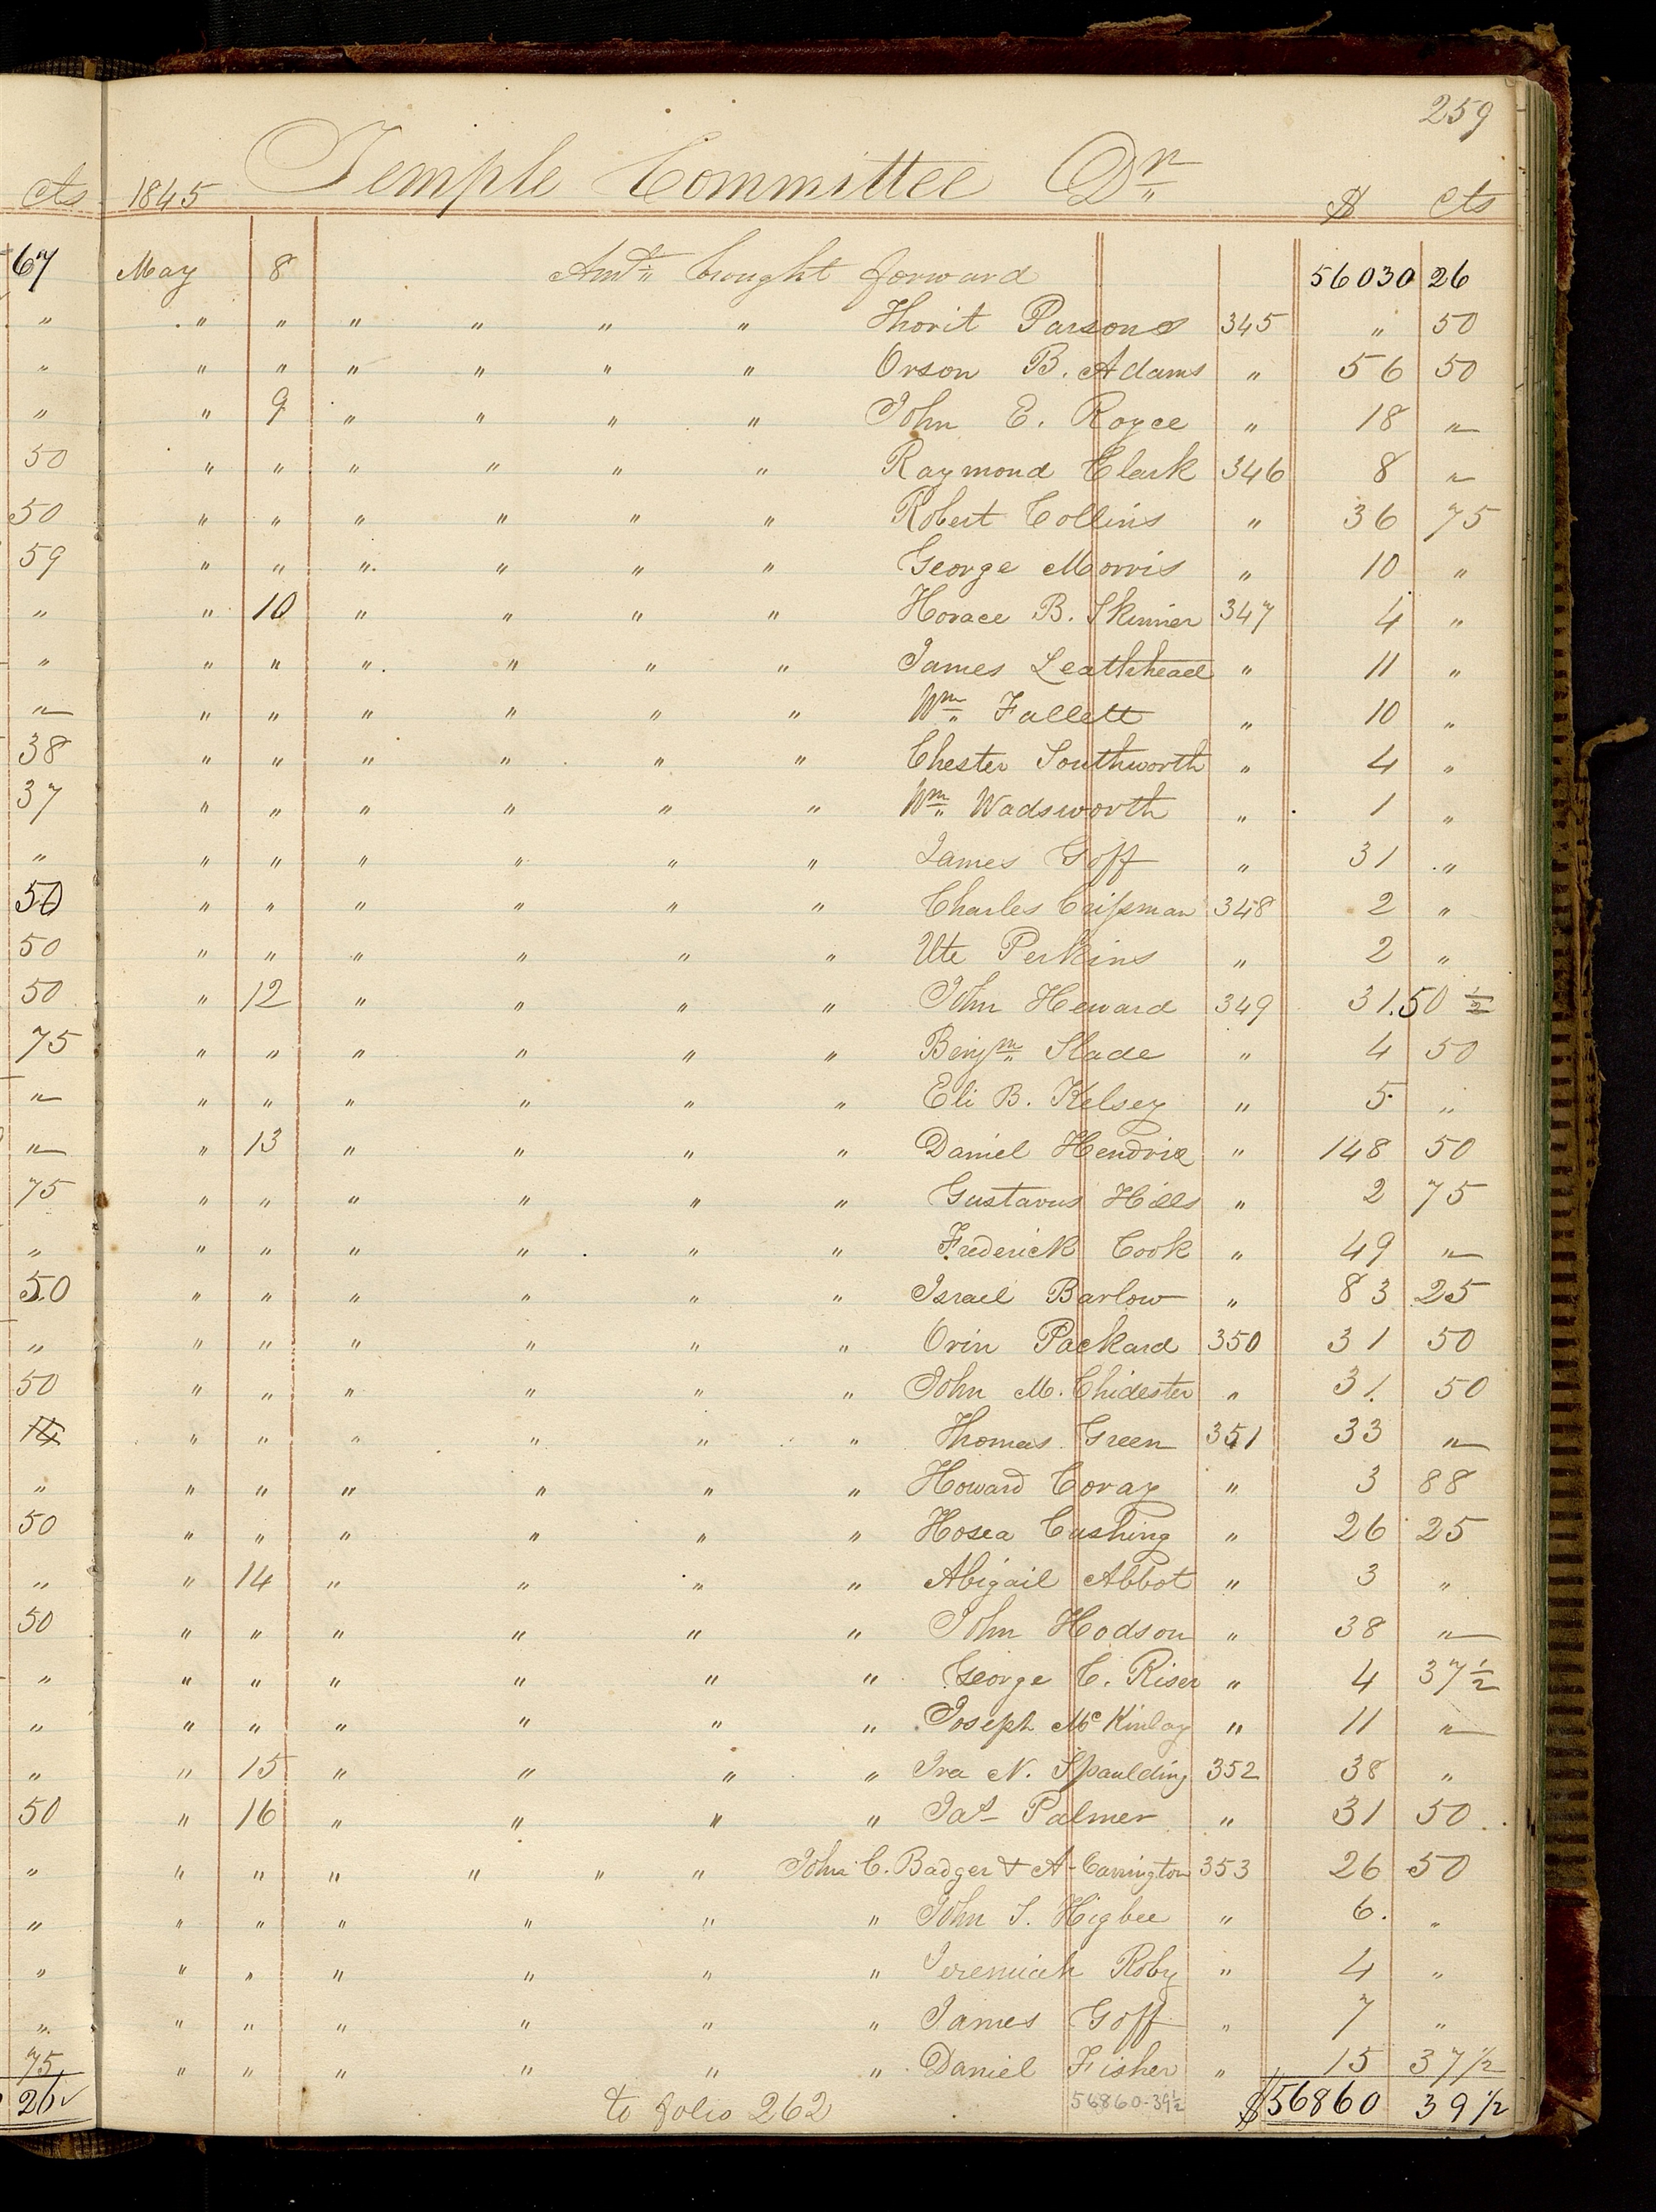 259
Temple Committee Dr
cts 1845 $ cts
67 May 8 Amt brought forward 56030 26
" " " " " " " Thorit Parsons 345 " 50
" " " " " " " Orson B. Adams " 56 50
" " 9 " " " " John E. Royce " 18 "
50 " " " " " " Raymond Clark 346 8 "
50 " " " " " " Robert Collins " 36 75
59 " " " " " " George Morris " 10 "
" " 10 " " " " Horace B. Skinner 347 4 "
" " " " " " " James Leathhead " 11 "
" " " " " " " Wm Fallett " 10 "
38 " " " " " " Chester Southworth " 4 "
37 " " " " " " Wm Wadsworth " 1 "
" " " " " " " James Goff " 31 "
50 " " " " " " Charles Crisman 348 2 "
50 " " " " " " Ute Perkins " 2 "
50 " 12 " " " " John Heward 349 31.50 1/2
75 " " " " " " Benjm Slade " 4 50
" " " " " " " Eli B. Kelsey " 5 "
" " 13 " " " " Daniel Hendrix " 148 50
75 " " " " " " Gustavus Hills " 2 75
" " " " " " " Frederick Cook " 49 "
50 " " " " " " Israel Barlow " 83 25
" " " " " " " Orin Packard 350 31 50
50 " " " " " " John M. Chidester " 31. 50
" " " " " " Thomas Green 351 33 "
" " " " " " " Howard Coray " 3 88
50 " " " " " " Hosea Cushing " 26 25
" " 14 " " " " Abigail Abbot " 3 "
50 " " " " " " John Hodson " 38 "
" " " " " " " George C. Riser " 4 37 1/2
" " " " " " " Joseph McKinlay " 11 "
" " 15 " " " " Ira N. Spaulding 352 38 "
50 " 16 " " " " Jas Palmer " 31 50
" " " " " " " John C. Badger & A. Carrington 353 26 50
" " " " " " " John S. Higbee " 6. "
" " " " " " " Jeremiah Roby " 4 "
" " " " " " " James Goff " 7 "
75 " " " " " " Daniel Fisher " 15 37 1/2
26 to folio 262 56860-39 1/2 $56860 39 1/2